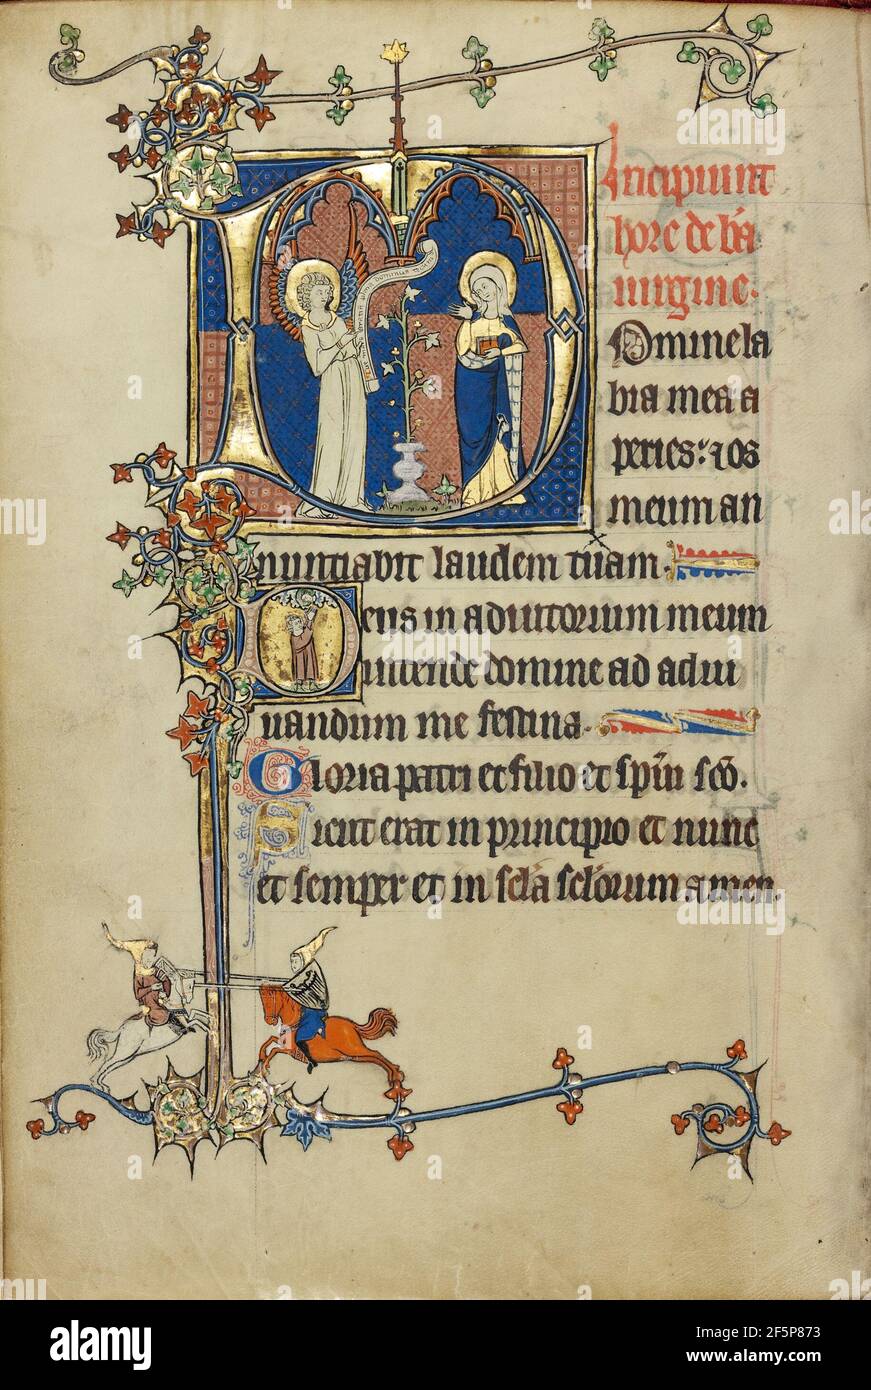 Incipiunt
hore de bã
uirgine.
Domine la
bia mea a
peries: ⁊ os
meum an
nuntiabit laudem tuam.
Deus in adiutorium meum
intende domine ad adiu
uandum me festina.
Gloria patri et filio et spũi scõ.
Sicut erat in principio et nunc
et semper et in scl̃a scl̃orum amen.
alamy
Image ID: 2F5P873
www.alamy.com